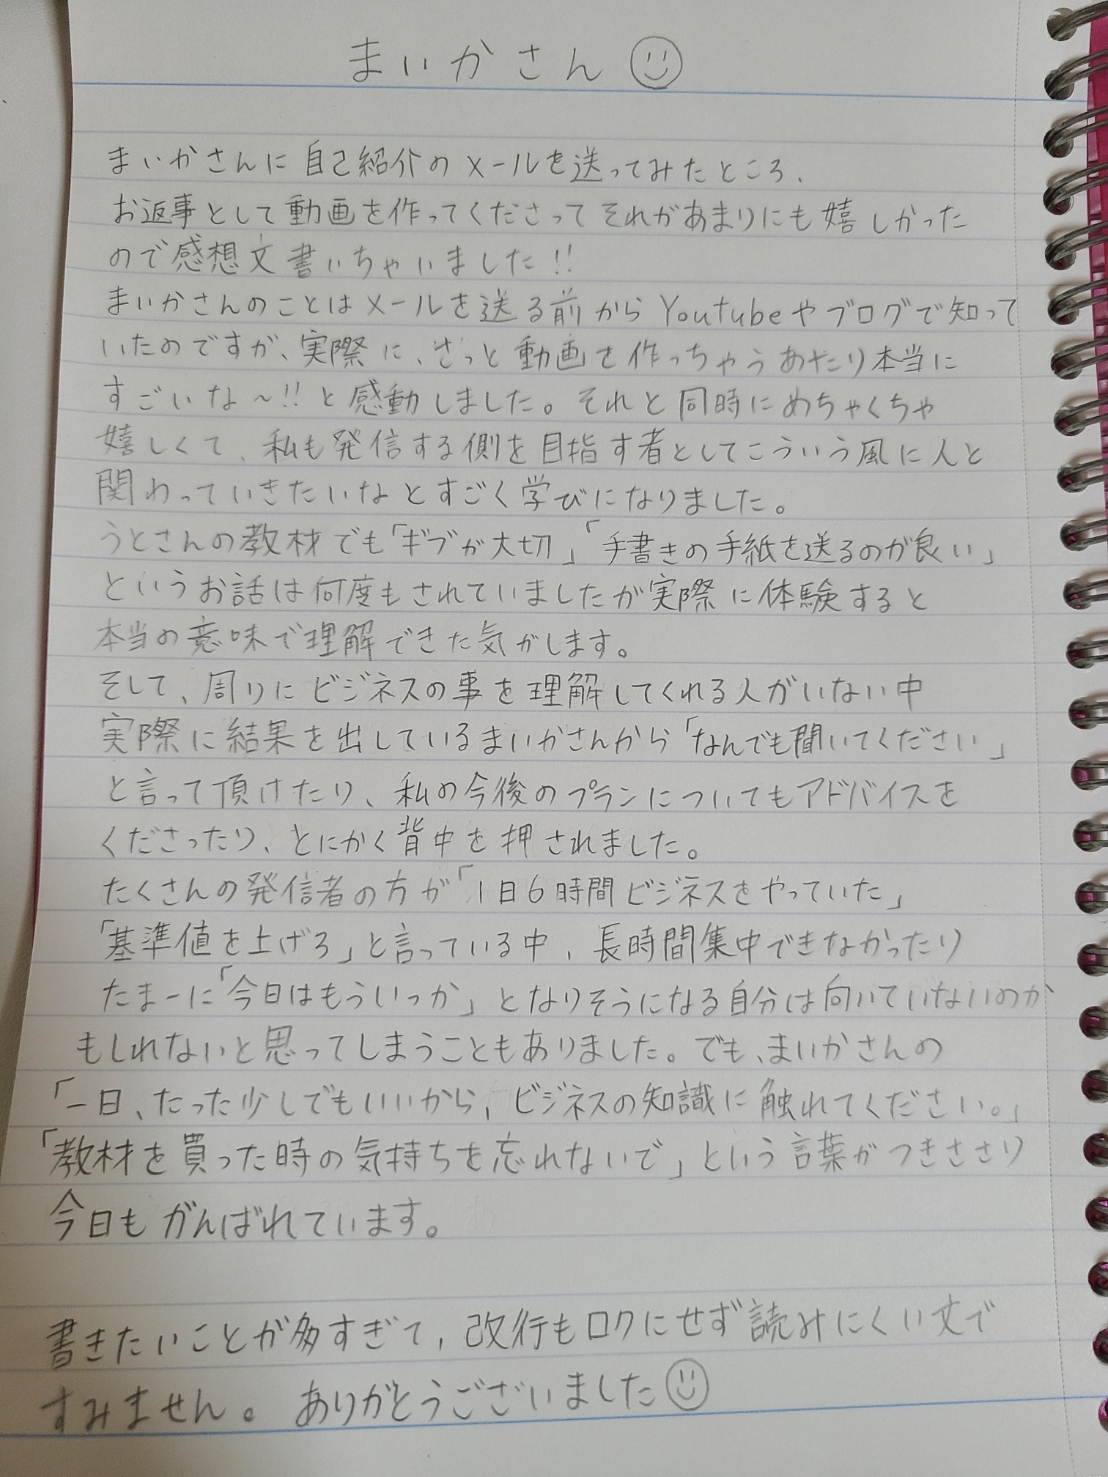 まいかさん☺
まいかさんに自己紹介のメールを送ってみたところ、
お返事として動画を作ってくださってそれがあまりにも嬉しかった
ので感想文書いちゃいました!!
まいかさんのことはメールを送る前からYoutubeやブログで知って
いたのですが、実際に、さっと動画を作っちゃうあたり本当に
すごいな〜!!と感動しました。それと同時にめちゃくちゃ
嬉しくて、私も発信する側を目指す者としてこういう風に人と
関わっていきたいなとすごく学びになりました。
うとさんの教材でも「ギブが大切」「手書きの手紙を送るのが良い」
というお話は何度もされていましたが実際に体験すると
本当の意味で理解できた気がします。
そして、周りにビジネスの事を理解してくれる人がいない中
実際に結果を出しているまいかさんから「なんでも聞いてください」
と言って頂けたり、私の今後のプランについてもアドバイスを
くださったり、とにかく背中を押されました。
たくさんの発信者の方が「1日6時間ビジネスをやっていた」
「基準値を上げろ」と言っている中、長時間集中できなかったり
たまーに「今日はもういっか」となりそうになる自分は向いていないのか
もしれないと思ってしまうこともありました。でも、まいかさんの
「一日、たった少しでもいいから、ビジネスの知識に触れてください。」
「教材を買った時の気持ちを忘れないで」という言葉がつきささり
今日もがんばれています。
書きたいことが多すぎて、改行もロクにせず読みにくい文で
すみません。ありがとうございました☺